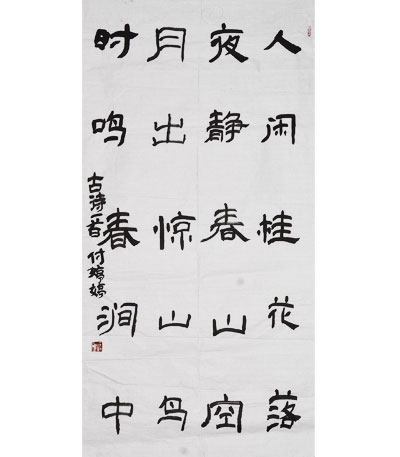 人闲桂花落
夜静春山空
月出惊山鸟
时鸣春涧中
古诗一首 付